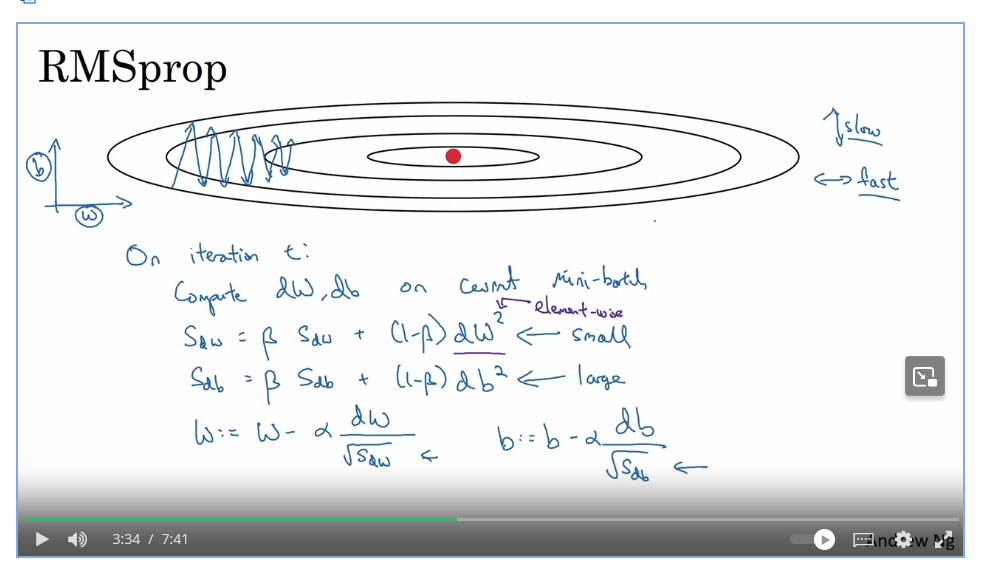 RMSprop
slow
fast
b
w
On iteration t:
Compute dW, db on current mini-batch
element-wise
Sdw = β Sdw + (1-β) dW² ← small
Sdb = β Sdb + (1-β) db² ← large
W := W - α dW/√Sdw ← b := b - α db/√Sdb ←
3:34 / 7:41
Andrew Ng